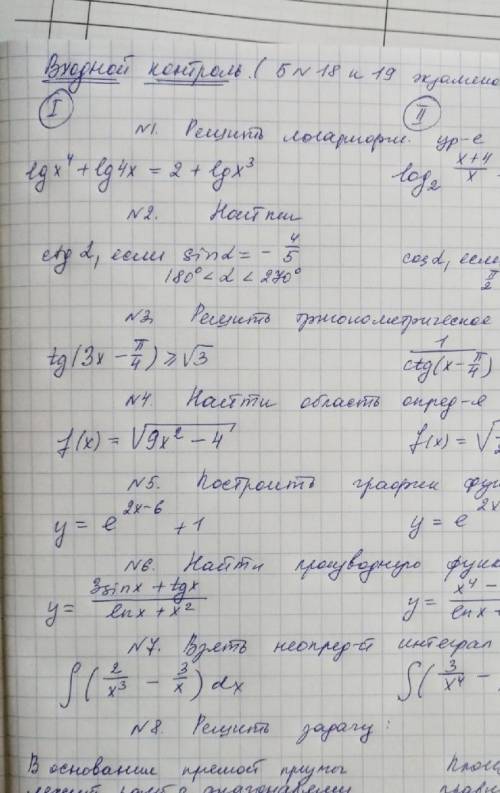 Входной контроль. ( Б N 18 и 19 экзамено
I II
N1. Решить логарифм. ур-е
lgx⁴ + lg4x = 2 + lgx³ log₂ (x+4)/x
N2. Найти
ctg α, если sinα = - 4/5 cosα, если
180° < α < 270° π/2
N3. Решить тригонометрическое
tg(3x - π/4) ⩾ √3 1/ctg(x - π/4)
N4. Найти область опред-я
f(x) = √(9x² - 4) f(x) = √
N5. Построить график фун
y = e^(2x-6) + 1 y = e^(2x
N6. Найти производную функ
y = (3sinx + tgx)/(lnx + x²) y = (x⁴ -)/(lnx +
N7. Взять неопред-й интеграл
∫(2/x³ - 3/x)dx ∫(3/x⁴ -
N8. Решить задачу:
В основании прямой призмы
лежит ромб с диагоналями